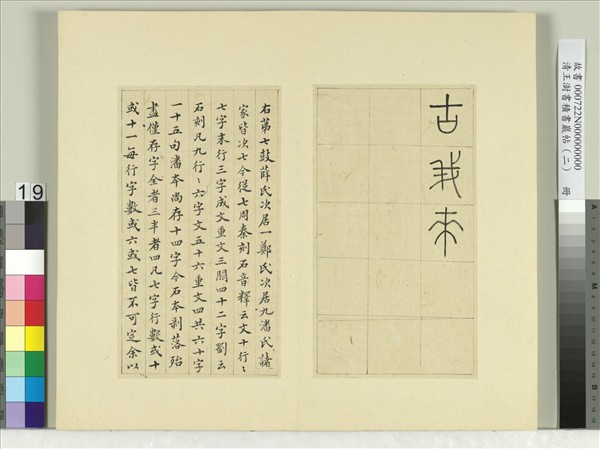 古我來
右第七鼓薛氏次居一鄭氏次居九潘氏諸
家皆次七今從七周秦刻石音釋云文十行〻
七字末行三字成文重文三闕四十二字劉云
石刻凡九行〻六字文五十六重文四共六十字
一十五句潘本尚存十四字今石本剥落殆
盡僅存字全者三半者四凡七字行數或十
或十一每行字數或六或七皆不可定余以
故書 000722N000000000
清王澍書積書巖帖(二) 冊
19